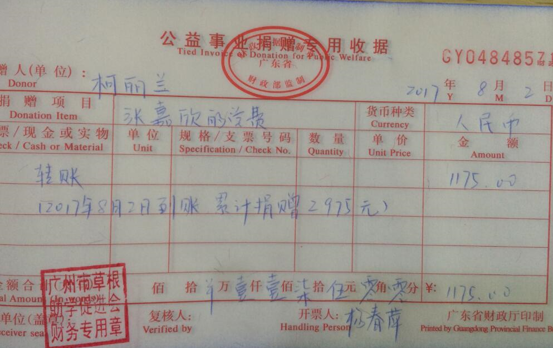 公益事业捐赠专用收据
Tied Invoice of Donation for Public Welfare
广东省
财政部监制
GY048485
赠人(单位):
Donor
柯丽兰
2017 年 8 月 2 日
Y M D
捐赠项目
Donation Item
张嘉欣的学费
货币种类
Currency
人民币
票/现金或实物
Check / Cash or Material
单位
Unit
规格/支票号码
Specification / Check No.
数量
Quantity
单价
Unit Price
金额
Amount
转账
1175.00
(2017年8月2日到账 累计捐赠2975元)
金额合
佰 拾 万 壹 仟 壹 佰 柒 拾 伍 元 零 角 零 分 ¥: 1175.00
广州市草根
助学促进会
财务专用章
单位(盖
复核人:
Verified by
开票人:
Handling Person
杨春萍
广东省财政厅印制
Printed by Guangdong Provincial Finance